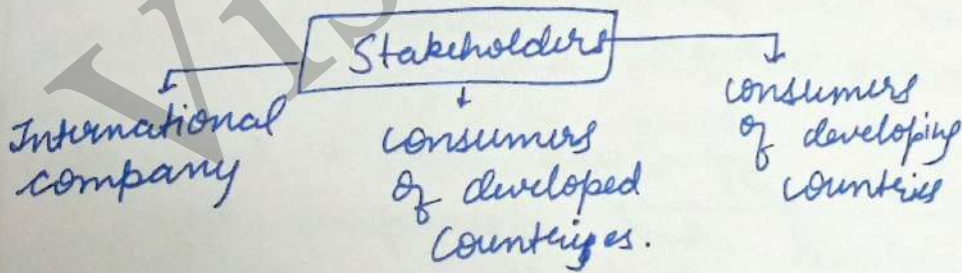 Stakeholders
International
company
consumers
of developed
Countries.
consumers
of developing
countries